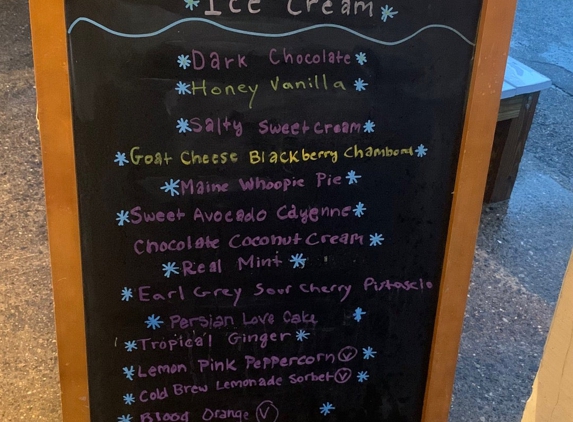 *Ice Cream*
*Dark Chocolate*
*Honey Vanilla*
*Salty Sweet Cream*
*Goat Cheese Blackberry Chambord*
*Maine Whoopie Pie*
*Sweet Avocado Cayenne*
Chocolate Coconut Cream*
*Real Mint*
*Earl Grey Sour Cherry Pistascio
*Persian Love Cake*
*Tropical Ginger*
*Lemon Pink Peppercorn Ⓥ*
*Cold Brew Lemonade Sorbet Ⓥ*
*Blood Orange Ⓥ*